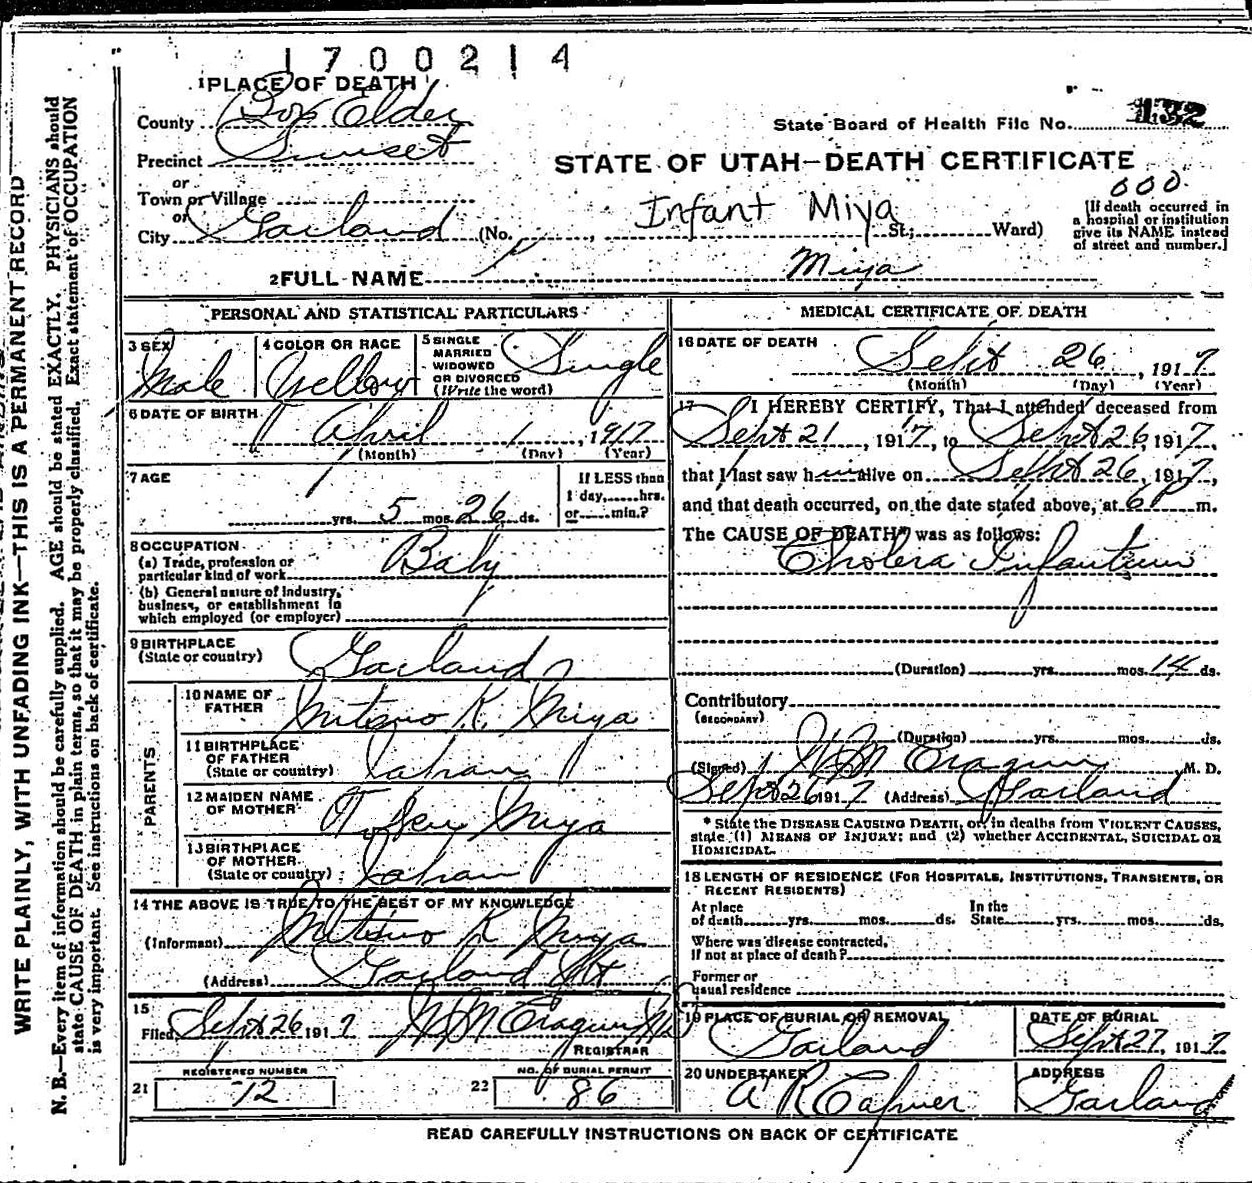 1700214
1 PLACE OF DEATH
County Box Elder
State Board of Health File No. 132
Precinct Sunset
STATE OF UTAH—DEATH CERTIFICATE
or
Town or Village
000
or
City Garland (No. , Infant Miya St; Ward)
[If death occurred in
a hospital or institution
give its NAME instead
of street and number.]
2 FULL NAME Miya
PERSONAL AND STATISTICAL PARTICULARS
3 SEX Male
4 COLOR OR RACE Yellow
5 SINGLE
MARRIED
WIDOWED
OR DIVORCED
(Write the word) Single
6 DATE OF BIRTH
April 1, 1917
(Month) (Day) (Year)
7 AGE
yrs. 5 mos. 26 ds.
If LESS than
1 day, hrs.
or min.?
8 OCCUPATION
(a) Trade, profession or
particular kind of work Baby
(b) General nature of Industry,
business, or establishment in
which employed (or employer)
9 BIRTHPLACE
(State or country) Garland
PARENTS
10 NAME OF
FATHER K. Miya
11 BIRTHPLACE
OF FATHER
(State or country) Japan
12 MAIDEN NAME
OF MOTHER Miya
13 BIRTHPLACE
OF MOTHER
(State or country) Japan
14 THE ABOVE IS TRUE TO THE BEST OF MY KNOWLEDGE
(Informant) K Miya
(Address) Garland Ut
15
Filed Sept 26 1917 W M
REGISTRAR
21 REGISTERED NUMBER 72
22 NO. OF BURIAL PERMIT 86
MEDICAL CERTIFICATE OF DEATH
16 DATE OF DEATH
Sept 26, 1917
(Month) (Day) (Year)
17 I HEREBY CERTIFY, That I attended deceased from
Sept 21, 1917, to Sept 26, 1917,
that I last saw him alive on Sept 26, 1917,
and that death occurred, on the date stated above, at 6 P m.
The CAUSE OF DEATH* was as follows:
Cholera Infantum
(Duration) yrs. mos. 14 ds.
Contributory
(SECONDARY)
(Duration) yrs. mos. ds.
(Signed) M. D.
Sept 26 1917 (Address) Garland
* State the DISEASE CAUSING DEATH, or, in deaths from VIOLENT CAUSES,
state (1) MEANS OF INJURY; and (2) whether ACCIDENTAL, SUICIDAL OR
HOMICIDAL.
18 LENGTH OF RESIDENCE (FOR HOSPITALS, INSTITUTIONS, TRANSIENTS, OR
RECENT RESIDENTS)
At place In the
of death yrs. mos. ds. State yrs. mos. ds.
Where was disease contracted,
If not at place of death?
Former or
usual residence
19 PLACE OF BURIAL OR REMOVAL Garland
DATE OF BURIAL
Sept 27, 1917
20 UNDERTAKER A R
ADDRESS Garland
READ CAREFULLY INSTRUCTIONS ON BACK OF CERTIFICATE
WRITE PLAINLY, WITH UNFADING INK—THIS IS A PERMANENT RECORD
N. B.—Every item of information should be carefully supplied. AGE should be stated EXACTLY. PHYSICIANS should
state CAUSE OF DEATH in plain terms, so that it may be properly classified. Exact statement of OCCUPATION
is very important. See instructions on back of certificate.